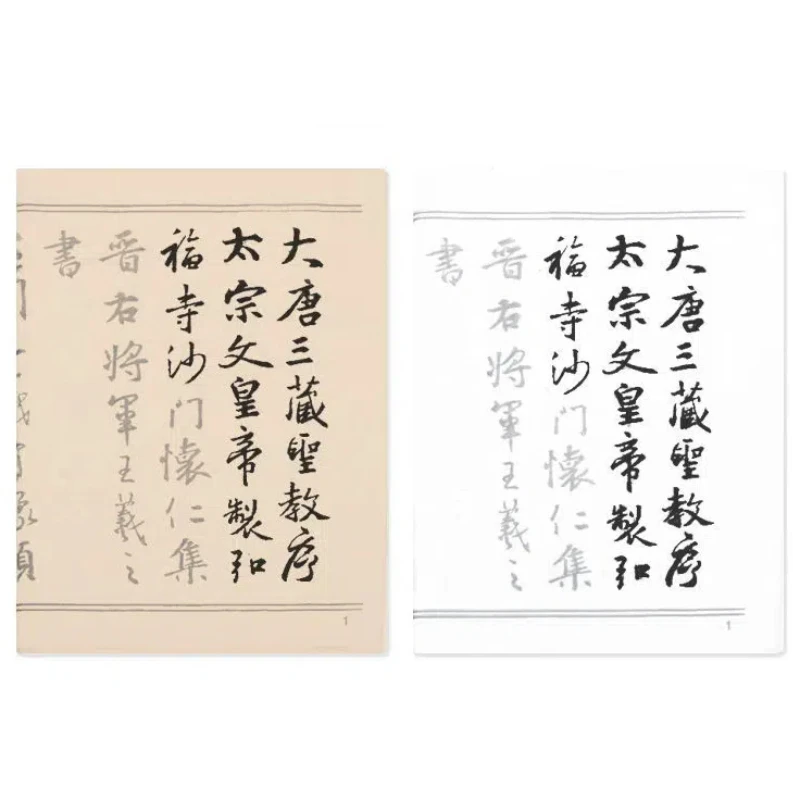 大唐三藏聖教序
太宗文皇帝製弘
福寺沙門懷仁集
晉右將軍王羲之
書
1
大唐三藏聖教序
太宗文皇帝製弘
福寺沙門懷仁集
晉右將軍王羲之
書
1